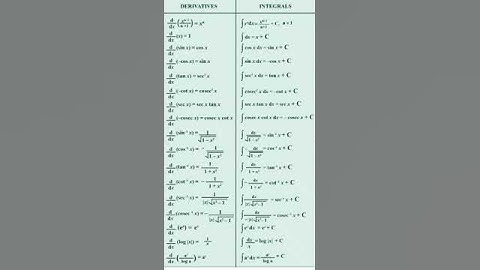 DERIVATIVES INTEGRALS
d/dx (xⁿ⁺¹/n+1) = xⁿ ∫ xⁿ dx = xⁿ⁺¹/n+1 + C,
d/dx (x) = 1 ∫ dx = x + C
d/dx (sin x) = cos x ∫ cos x dx = sin x + C
d/dx (-cos x) = sin x ∫ sin x dx = -cos x + C
d/dx (tan x) = sec² x ∫ sec² x dx = tan x + C
d/dx (-cot x) = cosec² x ∫ cosec² x dx = -cot x + C
d/dx (sec x) = sec x tan x ∫ sec x tan x dx = sec x + C
d/dx (-cosec x) = cosec x cot x ∫ cosec x cot x dx = -cosec x + C
d/dx (sin⁻¹ x) = 1/√1-x² ∫ dx/√1-x² = sin⁻¹ x + C
d/dx (cos⁻¹ x) = - 1/√1-x² ∫ - dx/√1-x² = cos⁻¹ x + C
d/dx (tan⁻¹ x) = 1/1+x² ∫ dx/1+x² = tan⁻¹ x + C
d/dx (cot⁻¹ x) = - 1/1+x² ∫ - dx/1+x² = cot⁻¹ x + C
d/dx (sec⁻¹ x) = 1/|x|√x²-1 ∫ dx/|x|√x²-1 = sec⁻¹ x + C
d/dx (cosec⁻¹ x) = - 1/|x|√x²-1 ∫ dx/-|x|√x²-1 = cosec⁻¹ x + C
d/dx (eˣ) = eˣ ∫ eˣ dx = eˣ + C
d/dx (log |x|) = 1/x ∫ dx/x = log |x| + C
d/dx (aˣ/log a) = aˣ ∫ aˣ dx = aˣ/log a + C